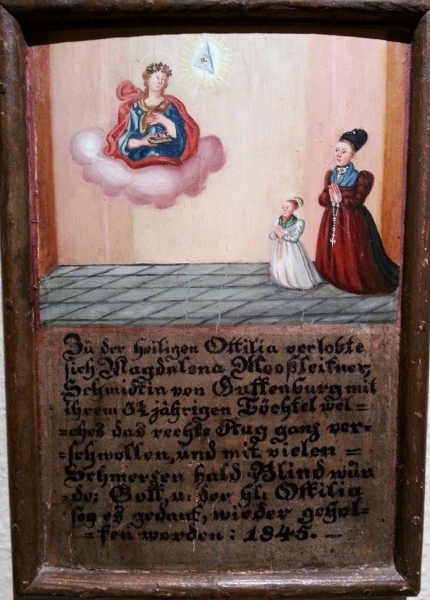 Zü der heiligen Ottilia verlobte
sich Magdalena Mooßleitner,
Schmidtin von Guttenburg mit
ihrem 5½ jährigen Töchtel wel=
=ches das rechte Aug ganz ver=
=schwollen, und mit vielen =
Schmerzen hald Blind wür
de: Gott, u: der hl: Ottilia
sey es gedank, wieder gehol=
=fen worden: 1845. —